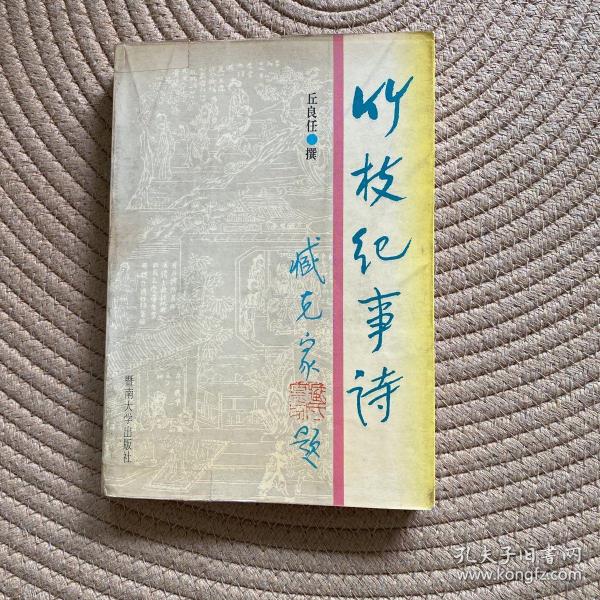 竹枝纪事诗
丘良任●撰
臧克家
题
暨南大学出版社
孔夫子旧书网
www.kongfz.com